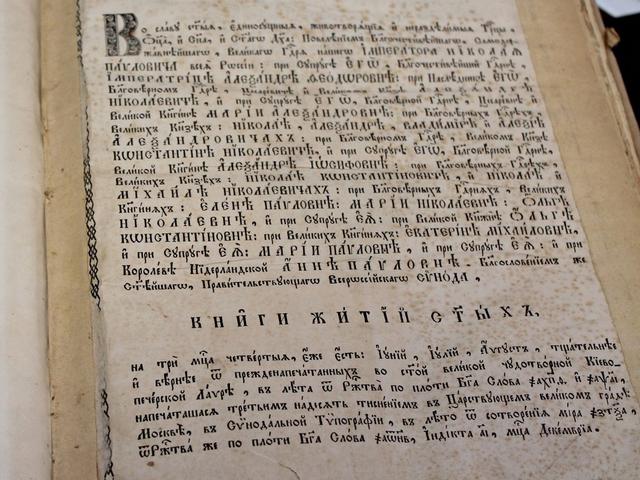 Во славу ст҃ыѧ, є҆диносꙋ́щныѧ, животворѧ́щїѧ и҆ нераздѣли́мыѧ Трⷪ҇цы,
Ѻ҆ц҃а̀, и҆ Сн҃а, и҆ Ст҃а́гѡ Дх҃а: Повелѣ́нїемъ Благочести́вѣйшагѡ, Самодер-
жа́внѣйшагѡ, Вели́кагѡ Гдⷭ҇рѧ на́шегѡ ІМПЕРАТОРА НІКОЛАѦ
ПАѴЛОВИЧА всеѧ̀ Рѡссі́и: при Сꙋпрꙋ́гѣ Є҆ГѠ̀, Благочести́вѣйшей Гдⷭ҇рнѣ,
ІМПЕРАТРИЦѢ АЛЕѮАНДРѢ ѲЕОДѠРОВНѢ: при Наслѣ́дникѣ Є҆ГѠ̀,
Благовѣ́рномъ Гдⷭ҇рѣ, Цесаре́вичѣ и҆ Вели́комъ Кнѧ́зѣ АЛЕѮАНДРѢ
НІКОЛАЕВИЧѢ, и҆ при Сꙋпрꙋ́гѣ Є҆ГѠ̀, Благовѣ́рной Гдⷭ҇рнѣ, Цесаре́внѣ и҆
Вели́кой Кнѧги́нѣ МАРІИ АЛЕѮАНДРОВНѢ: при Благовѣ́рныхъ Гдⷭ҇рѣхъ,
Вели́кихъ Кнѧзѣ́хъ: НІКОЛАѢ, АЛЕѮАНДРѢ, ВЛАДИМІРѢ и҆ АЛЕѮІѢ
АЛЕѮАНДРОВИЧАХЪ: при Благовѣ́рномъ Гдⷭ҇рѣ, Вели́комъ Кнѧ́зѣ
КѠНСТАНТІНѢ НІКОЛАЕВИЧѢ, и҆ при Сꙋпрꙋ́гѣ Є҆ГѠ̀, Благовѣ́рной Гдⷭ҇рнѣ,
Вели́кой Кнѧги́нѣ АЛЕѮАНДРѢ ІѠСИФОВНѢ: при Благовѣ́рныхъ Гдⷭ҇рѣхъ,
Вели́кихъ Кнѧзѣ́хъ: НІКОЛАѢ КѠНСТАНТІНОВИЧѢ, и҆ НІКОЛАѢ и҆
МІХАИЛѢ НІКОЛАЕВИЧАХЪ: при Благовѣ́рныхъ Гдⷭ҇рнѧхъ, Вели́кихъ
Кнѧги́нѧхъ: ЕЛЕНѢ ПАѴЛОВНѢ: МАРІИ НІКОЛАЕВНѢ: ѺЛЬГѢ
НІКОЛАЕВНѢ, и҆ при Сꙋпрꙋ́гѣ Є҆Ѧ̀: при Вели́кой Кнѧжнѣ̀ ѺЛЬГѢ
КѠНСТАНТІНОВНѢ: при Вели́кихъ Кнѧги́нѧхъ: ЕКАТЕРІНѢ МІХАИЛОВНѢ,
и҆ при Сꙋпрꙋ́гѣ Є҆Ѧ̀: МАРІИ ПАѴЛОВНѢ, и҆ при Сꙋпрꙋ́гѣ Є҆Ѧ̀: и҆ при
Короле́вѣ Нїдерла́ндской АННѢ ПАѴЛОВНѢ. Благослове́нїемъ же
Ст҃ѣ́йшагѡ, Прави́тельствꙋющагѡ Всерѡссі́йскагѡ СѴНОДА,
КНИГИ ЖИТІЙ СТ҃ЫХЪ,
на трѝ мцⷭ҇а четве́ртыѧ, є҆́же є҆́сть: І҆ꙋ́нїй, І҆ꙋ́лїй, А҆́ѵгꙋстъ, тща́тельнѣе
и҆ вѣ́рнѣе ѿ прежденапеча́танныхъ во ст҃о́й вели́кой чꙋдотво́рной Кїево-
пече́рской Ла́ѵрѣ, въ лѣ̑та ѿ Ржⷭ҇тва̀ по пло́ти Бг҃а Сло́ва
напеча́ташасѧ тре́тьимъ на́десѧть тисне́нїемъ въ Ца́рствꙋющемъ вели́комъ гра́дѣ
Москвѣ̀, въ Сѵнода́льной Тѵпогра́фїи, въ лѣ́то ѿ сотворе́нїѧ мі́ра
ѿ Ржⷭ҇тва́ же по пло́ти Бг҃а Сло́ва І҆нді́кта а҃і, мцⷭ҇а Деке́мврїа.